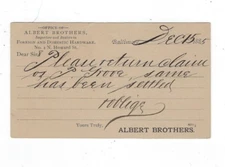 OFFICE OF
ALBERT BROTHERS,
Importers and Jobbers in
FOREIGN AND DOMESTIC HARDWARE,
No. 2 N. Howard St.
Dec 15
Dear Sir
Please return claim
vs Grove same
has been settled
oblige
Yours Truly,
ALBERT BROTHERS.